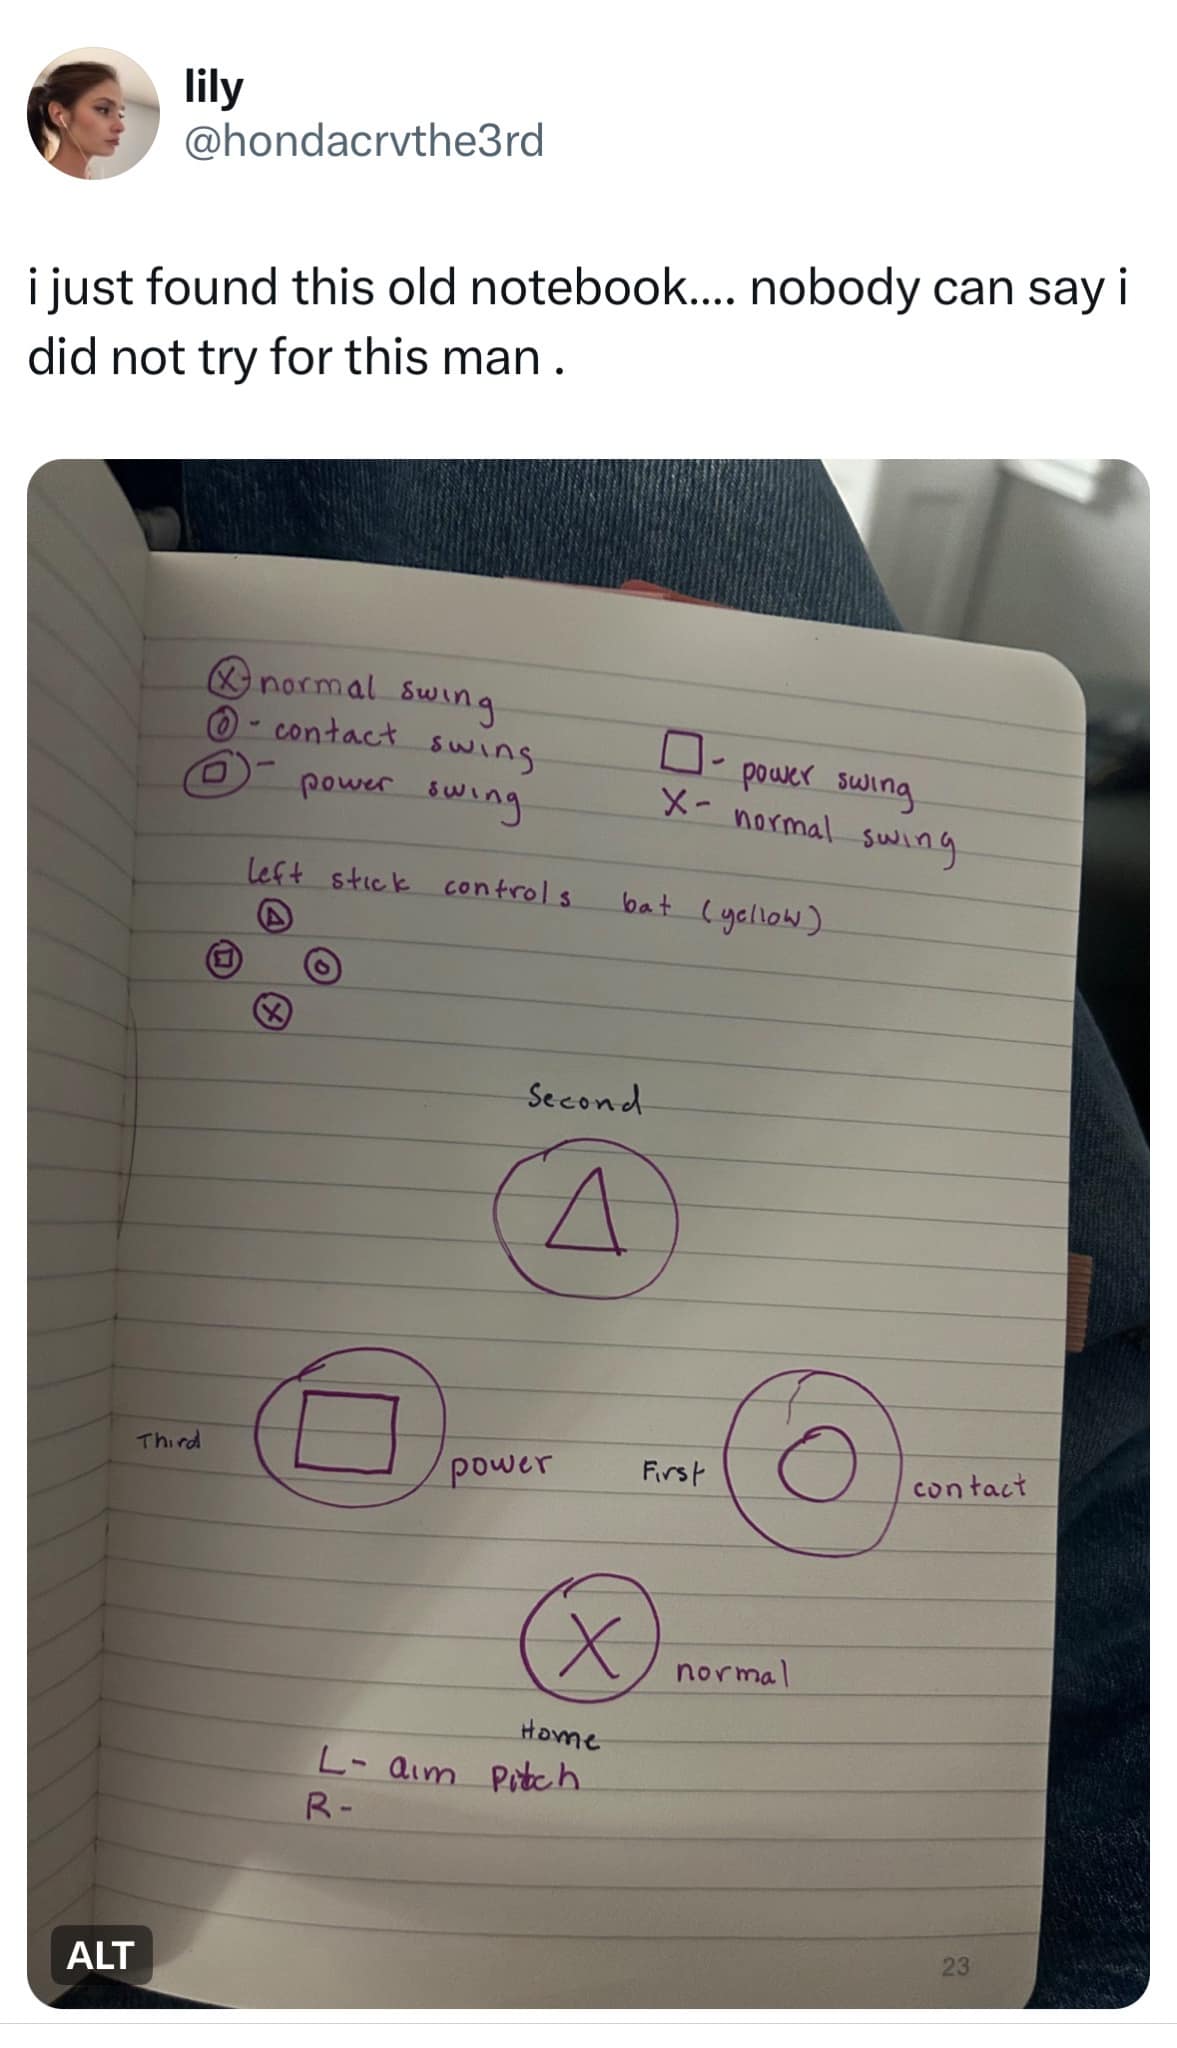 lily
@hondacrvthe3rd
i just found this old notebook.... nobody can say i
did not try for this man .
X - normal swing
O - contact swing
□ - power swing
□ - power swing
X - normal swing
left stick controls bat (yellow)
△
□ O
X
Second
△
Third □ power First O contact
X normal
Home
L - aim pitch
R -
ALT
23